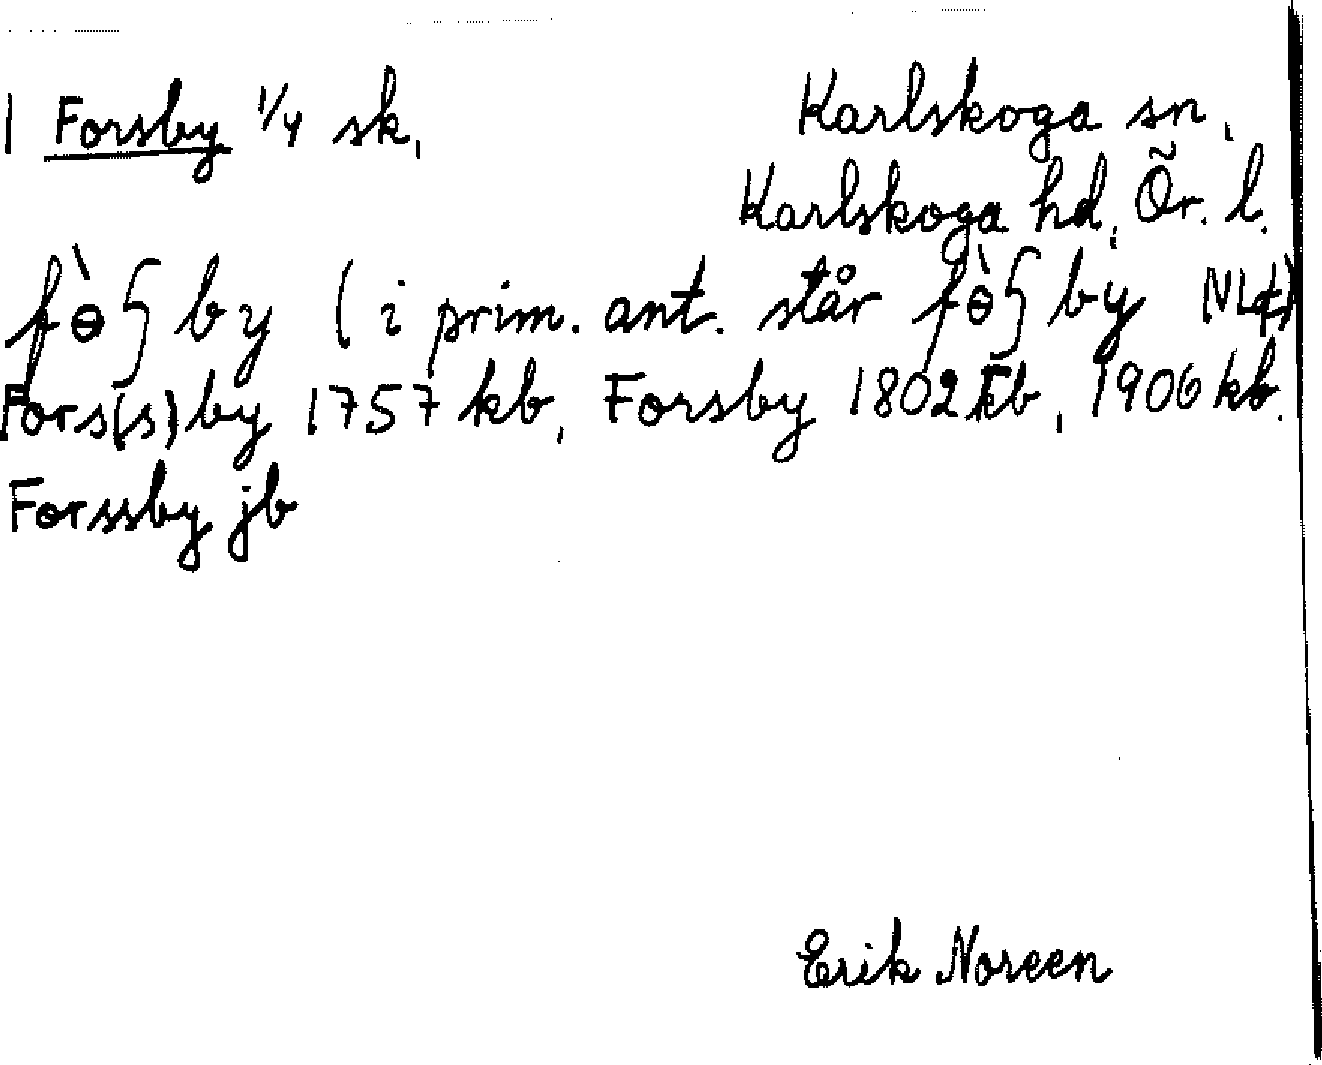 1 Forsby 1/4 sk, Karlskoga sn,
Karlskoga hd, Ör. l.
fɵ̀ʃ by (i prim. ant. står fɵ̀ʃ by
Fors(s)by 1757 kb, Forsby 1802 kb, 1906 kb.
Forssby jb
Erik Noreen